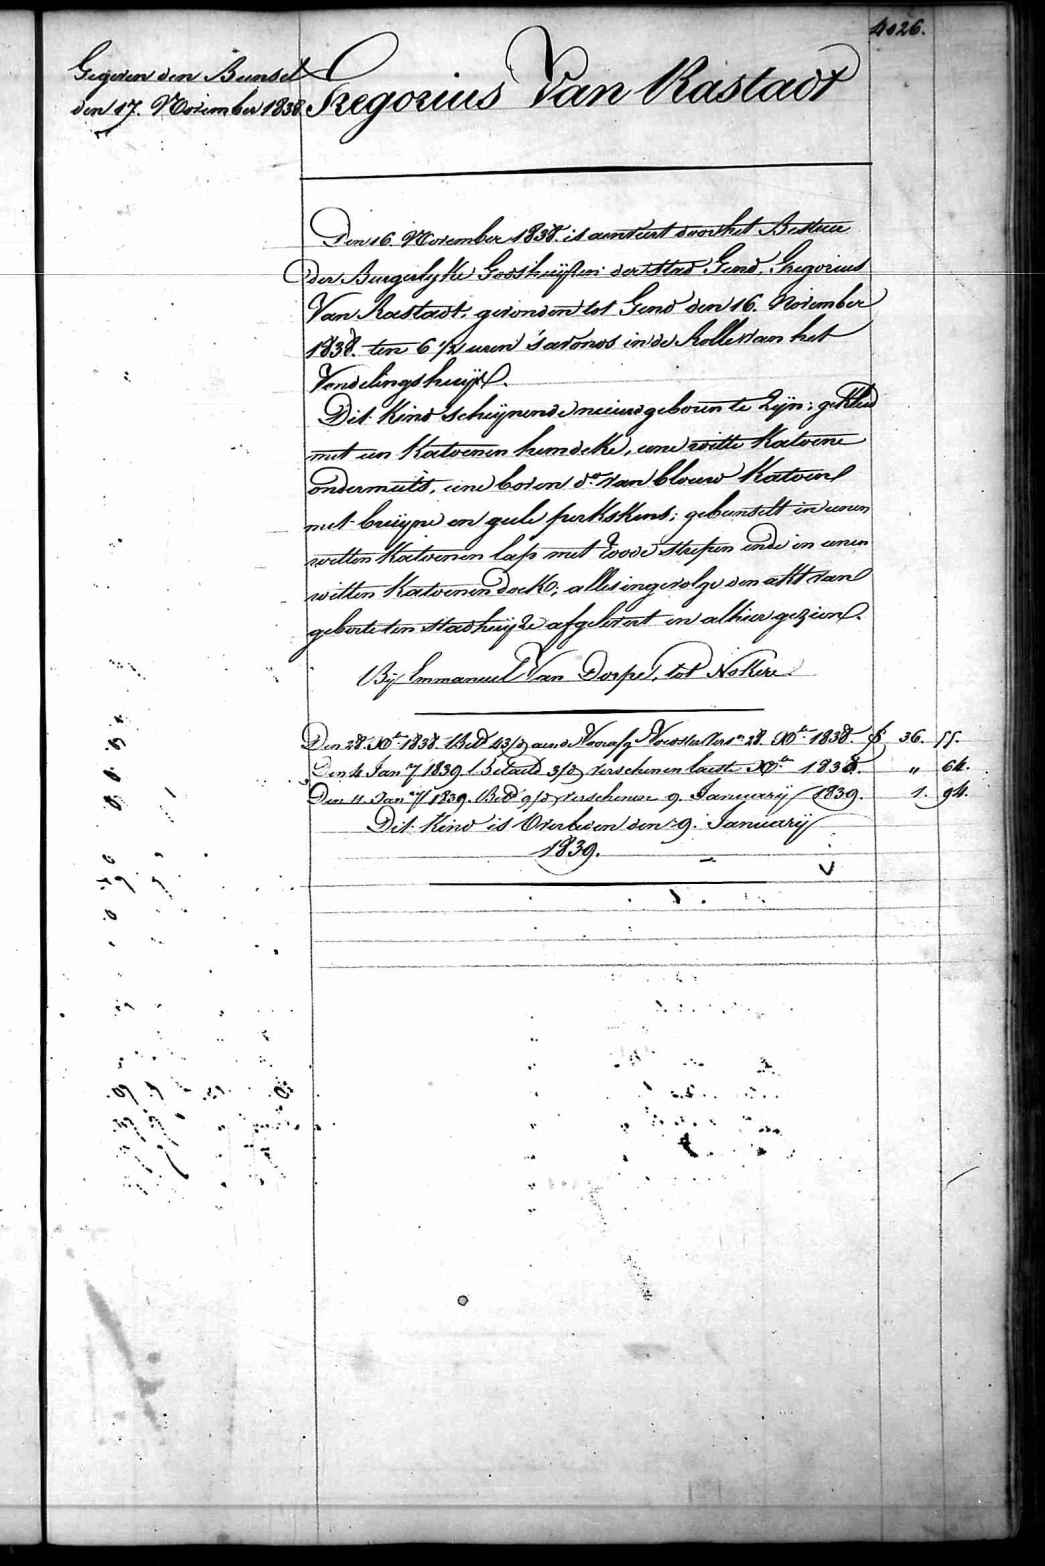 4026.
Gegeven den Bunsel
den 17. November 1838
Gregorius Van Rastadt
Den 16 November 1838. is aenveirt door het Bestier
der Burgerlyke Godshuijsen der stad Gend, Gregorius
Van Rastadt, gevonden tot Gend den 16. November
1838. ten 6 1/2 uren 's avonds in de Rolle van het
Vondelingshuijs.
Dit Kind scheijnende nieuwgeboren te Zijn; gekleed
met een Katoenen hemdeke, eene witte Katoene
ondermuts, eene boven do. van blouw Katoen
met bruijne en geele perkskens; gebunselt in eenen
witten Katoenen lap met roode strepen ende in eenen
witten Katoenen doek; alles ingevolge den akt van
geboorte ten stadhuijze afgelevert en alhier gezien.
Bij Emmanuel Van Dorpe, tot Nokere
Den 28. Xber 1838. Betd 43/d aen de Voorsz. Voedster Vers. 28. Xber 1838. f 36. 55.
Den 4 Jany 1839 Betaeld 3/d verschenen laeste Xber 1838. " 64.
Den 11 Jany 1839. Betd 9/d verschenen 9. Januarij 1839. 1. 94.
Dit Kind is Overleden den 9. Januarij
1839.